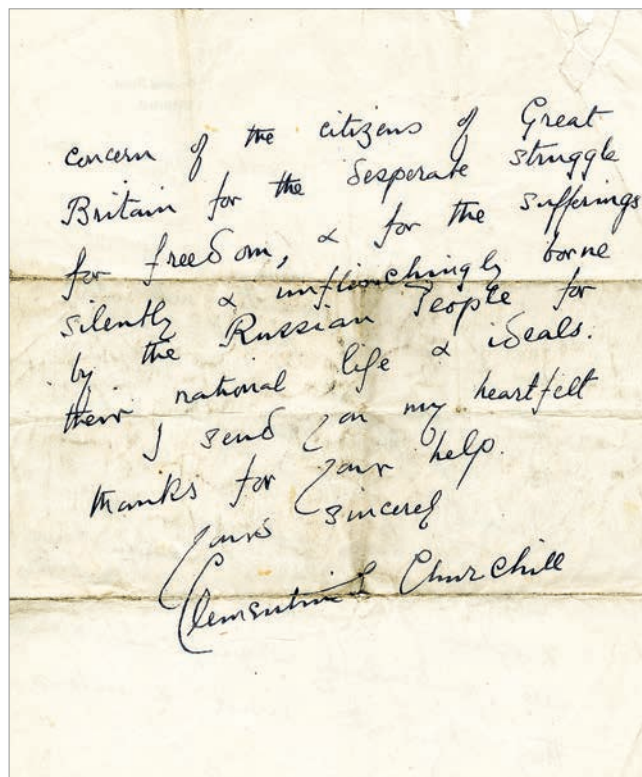 concern of the citizens of Great
Britain for the desperate struggle
for freedom, & for the sufferings
silently & unflinchingly borne
by the Russian People for
their national life & ideals.
I send you my heartfelt
thanks for your help.
yours sincerely
Clementine S Churchill